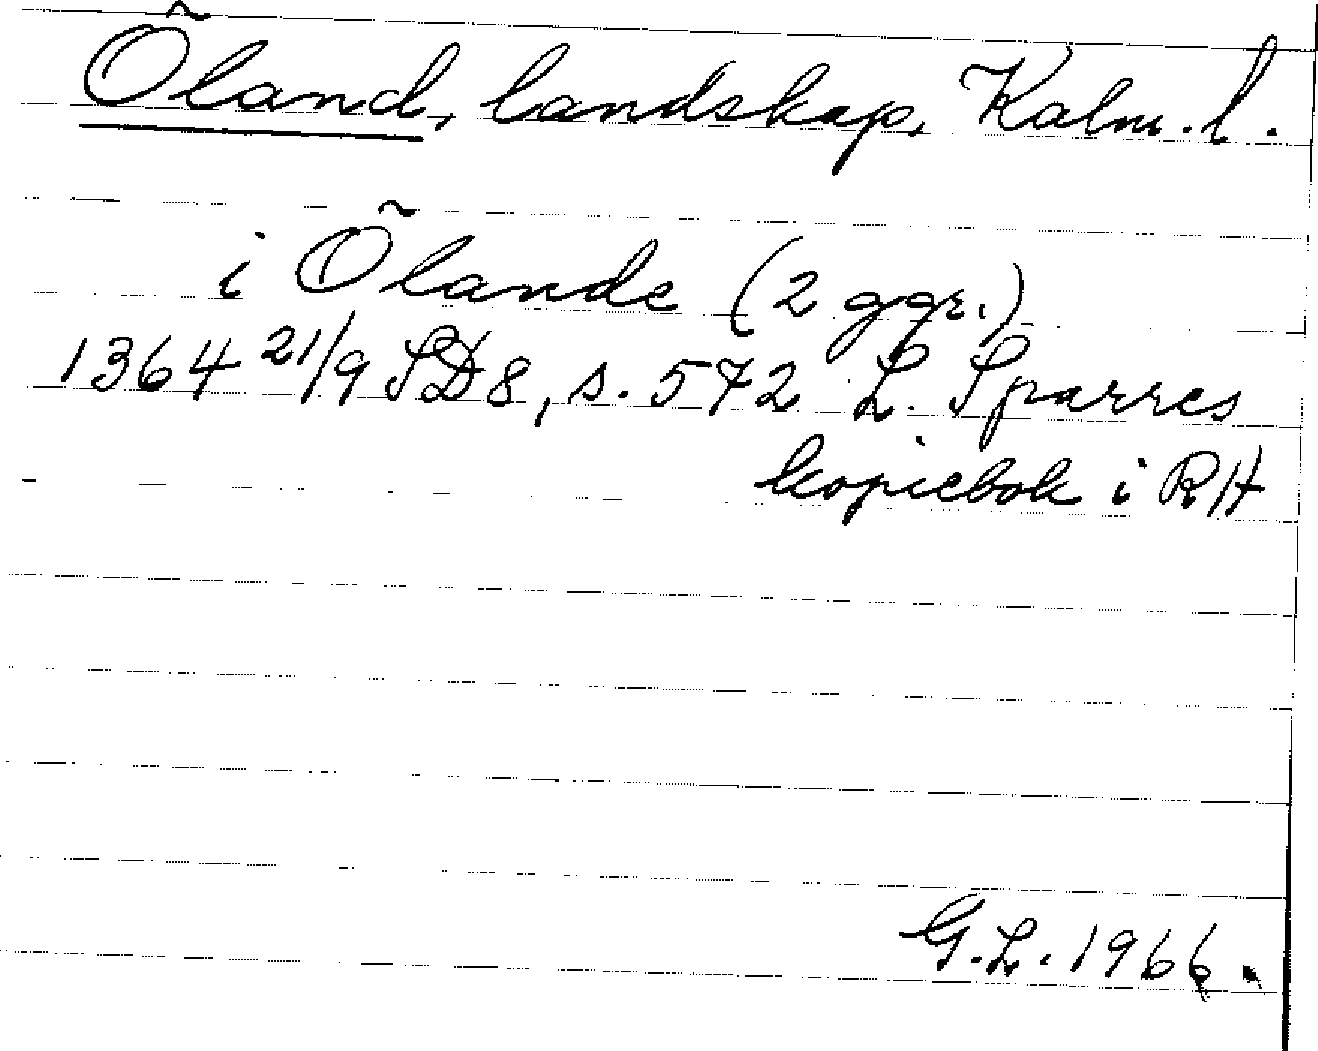 Öland, landskap, Kalm. l.
i Ölande (2 ggr.)
1364 21/9 SD8, s. 572 L. Sparres
kopiebok i RA
G.L. 1966.